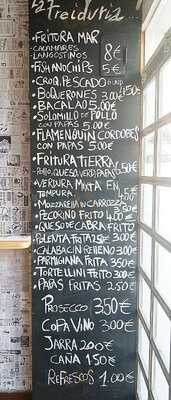 Freiduria
• FRITURA MAR
• CALAMARES
LANGOSTINOS 8€
• FISH AND CHIPS 5€
• CROQ. PESCADO
• BOQUERONES 3.00€
• BACALAO 5.00€
• SOLOMILLO DE POLLO
CON PAPAS 5.00€
• FLAMENQUIN CORDOBES
CON PAPAS 5.00€
• FRITURA TIERRA
POLLO, QUESO, VERD, PAPAS 5€
• VERDURA MIXTA EN
TEMPURA
• MOZZARELLA IN CARROZZA
• PECORINO FRITO 4.00€
• QUESO DE CABRA FRITO
• POLENTA FRITA 2.50€ 3.00€
• CALABACIN RELLENO 3.00€
• PARMIGIANA FRITA 3.50€
• TORTELLINI FRITO 3.00€
• PAPAS FRITAS 2.50€
PROSECCO 3.50€
COPA VINO 3.00€
JARRA 2.00€
CAÑA 1.50€
REFRESCOS 1.00€